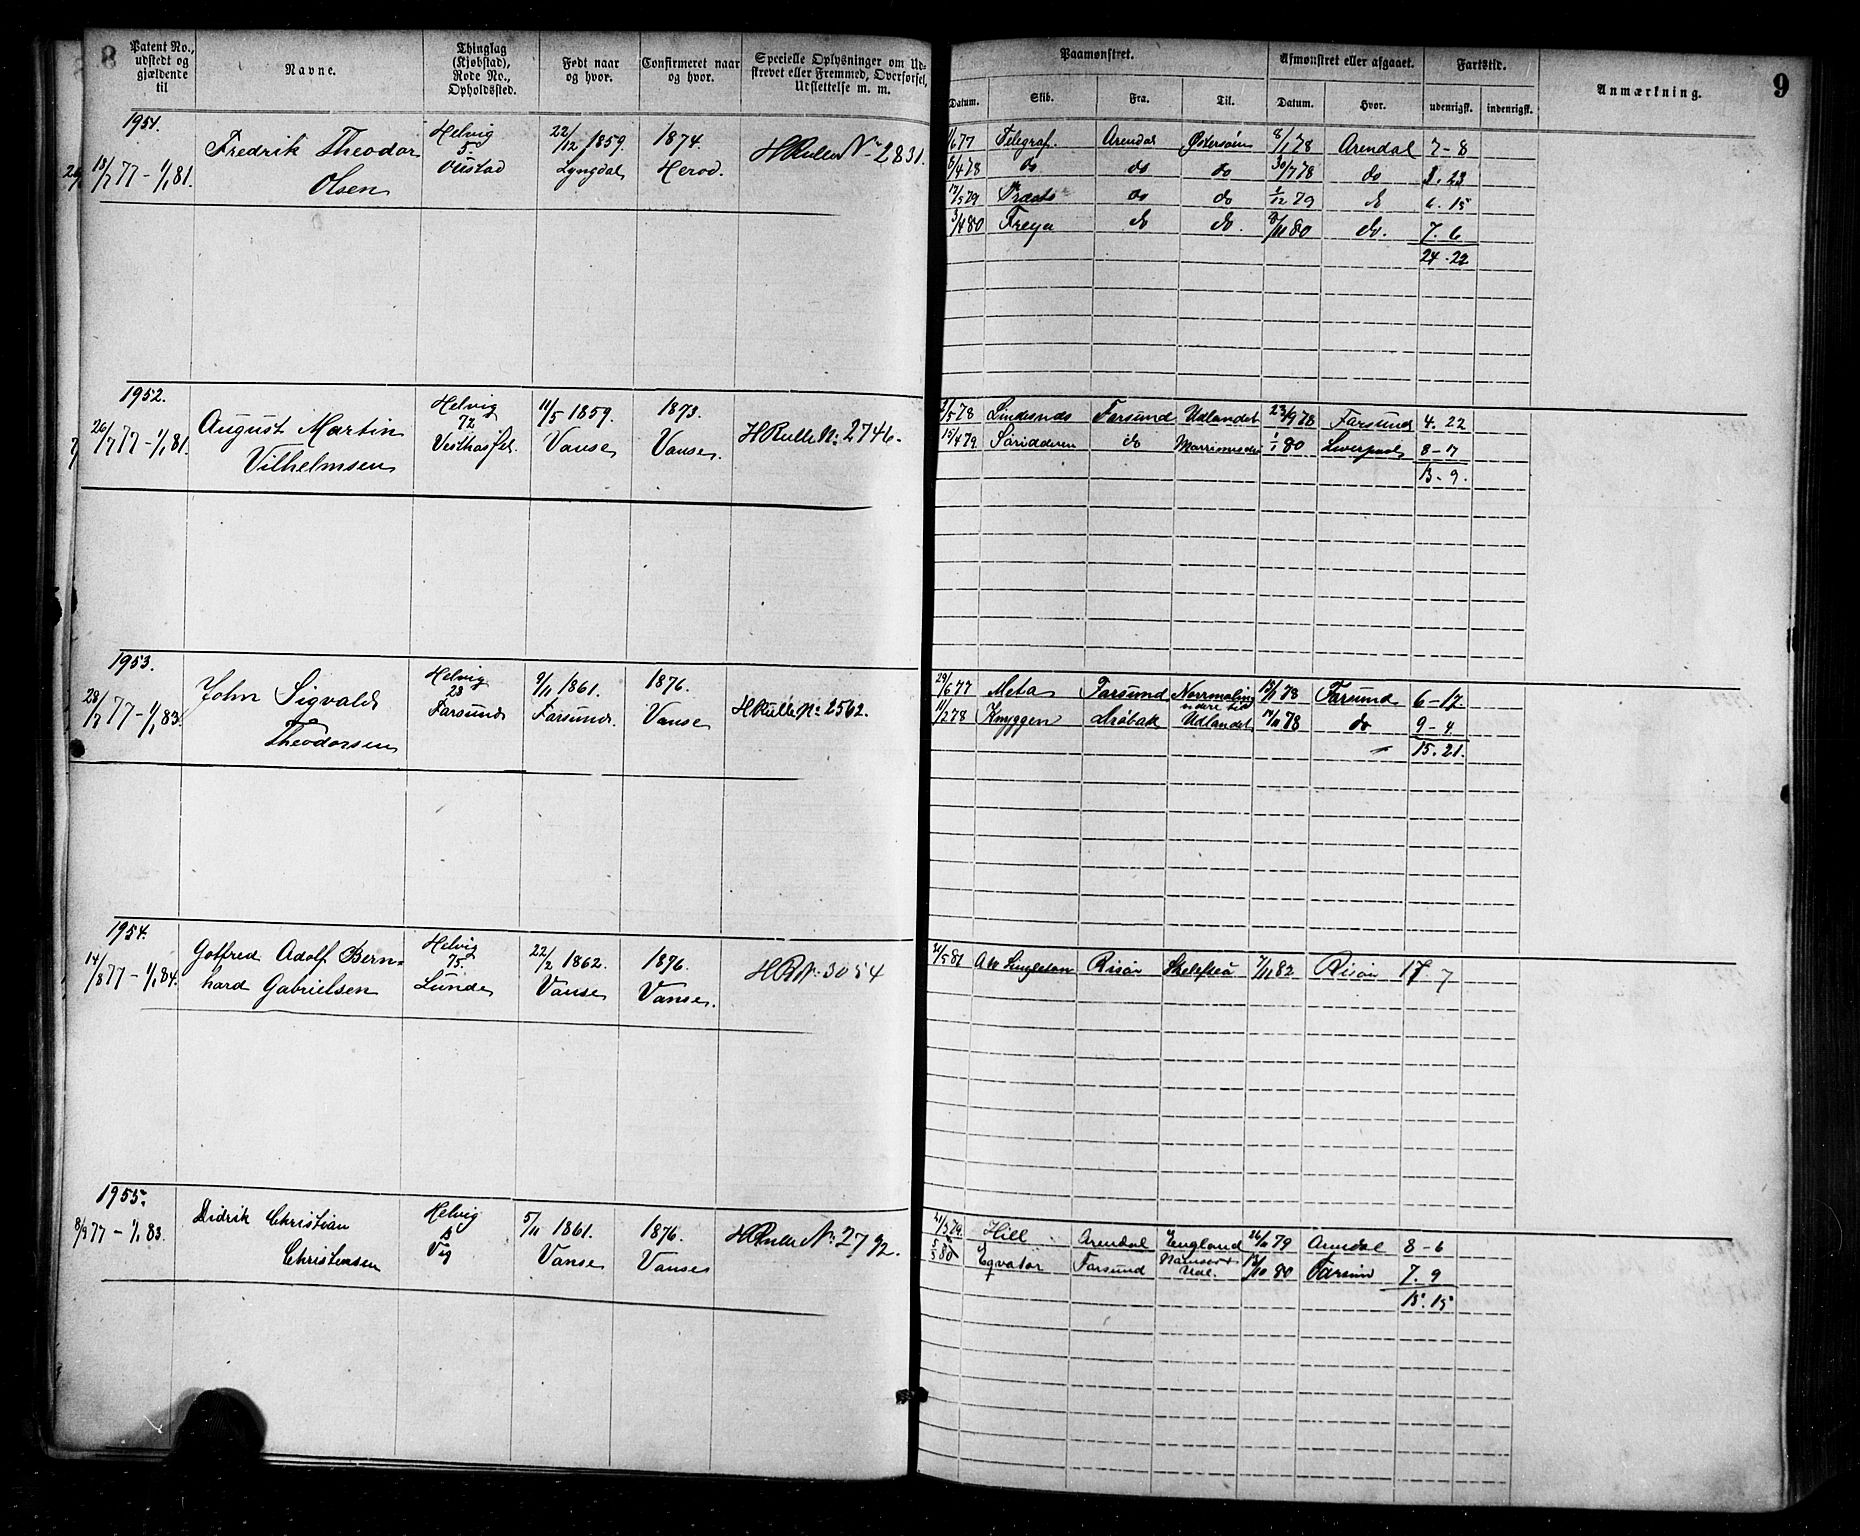 8
Patent No., udstedt og gjældende til
Navne.
Thinglag (Kjøbstad), Rode No., Opholdssted.
Født naar og hvor.
Confirmeret naar og hvor.
Specielle Oplysninger om Udskrevet eller Fremmed, Overførsel, Udslettelse m. m.
Paamønstret.
Afmønstret eller afgaaet.
Fartstid.
Anmærkning.
9
Datum.
Skib.
Fra.
Til.
Datum.
Hvor.
udenrigsk.
indenrigsk.
1951.
18/7 77 - 1/1 81.
Fredrik Theodor
Olsen
Helvig
5.
22/12 1859.
Lyngdal
1874.
Herod.
HRulle No 2831.
/6 77 Telegraf. Arendal Østersøen 8/1 78 Arendal 7-8
6/4 78 do do do 30/7 78 do 3.23
17/5 79 do do 1/12 79 do 6.15
3/4 80 Freya do do. 8/11 80 do. 7.6
24-22
1952.
26/7 77 - 1/1 81.
August Martin
Vilhelmsen
Helvig
72
11/5 1859.
Vanse
1873.
Vanse.
HRulle No 2746.
2/5 78 Lindesnæs Farsund Udlandet 23/9 78 Farsund 4.22
15/4 79. do 1/1 80 Liverpool 8-17
13-9.
1953.
28/7 77 - 1/1 83.
John Sigvald
Theodorsen
Helvig
23
Farsund
9/11 1861.
Farsund.
1876.
Vanse
HRulle No 2562.
29/6 77 Meta Farsund 78 Farsund 6-17
11/2 78 Knyggen Drøbak Udlandet 14/11 78 do 9-4
15.21.
1954.
14/8 77 - 1/1 84.
Gotfred Adolf Bern=
hard Gabrielsen
Helvig
75
Lunde
22/2 1862.
Vanse
1876.
Vanse.
HR No 3054
/5 81 Singleton Risør Skelefteå 7/11 82 Risør 17 7
1955.
8/9 77 - 1/1 83.
Didrik Christian
Christensen
Helvig
Vig
5/11 1861.
Vanse
1876.
Vanse
HRulle No 2792.
21/3 79. Hill Arendal England 26/11 79 Arendal 8-6
5/3 80 Eqvator Farsund Udl. 13/10 80 Farsund 7.9
15.15